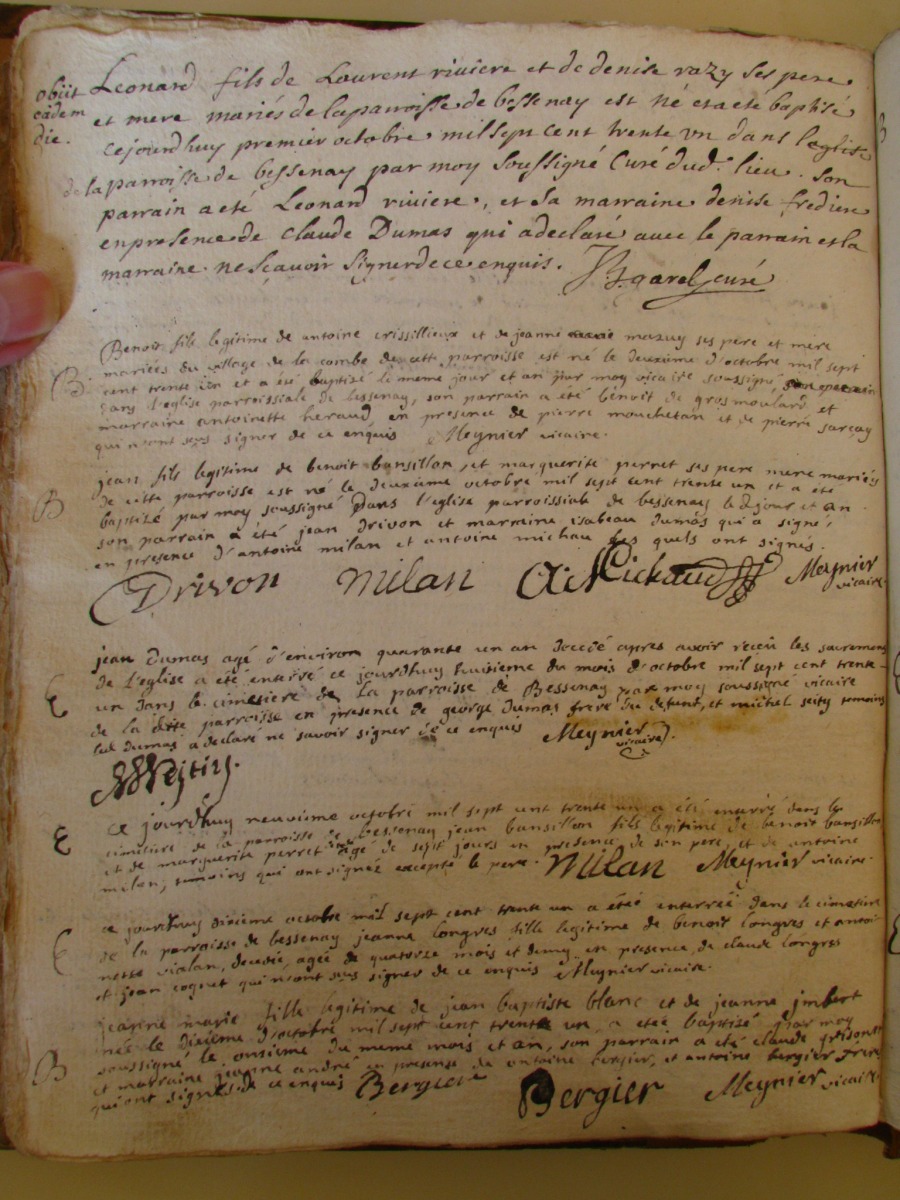 obiit
eadem
die.
Leonard fils de Laurent riviere et de denise razy ses pere
et mere mariés de la parroisse de bessenay est né et a eté baptisé
ce jourdhuy premier octobre mil sept cent trente un dans leglise
de la parroisse de bessenay par moy soussigné Curé dud. lieu. son
parrain a eté Leonard riviere, et sa marraine denise fredier
en presence de Claude Dumas qui a declaré avec le parrain et la
marraine ne sçavoir signer de ce enquis. curé
B
Benoit fils legitime de antoine crissillieux et de jeanne mazuy ses pere et mere
mariés du village de la combe de cette parroisse est né le deuxime d'octobre mil sept
cent trente un et a été baptizé le meme jour et an par moy vicaire soussigné
dans l'eglise parroissiale de bessenay, son parrain a eté benoit de grosmoulard et
marraine antoinette heraud en presence de pierre mouchetan et de pierre sarçay
qui n'ont sçus signer de ce enquis Meynier vicaire.
B
jean fils legitime de benoit bansillon, et marguerite perret ses pere mere mariés
de cette parroisse est né le deuxime octobre mil sept cent trente un et a eté
baptizé par moy soussigné dans l'eglise parroissiale de bessenay led jour et an
son parrain a été jean drivon et marraine isabeau dumas qui a signé
en presence d'antoine milan et antoine michau les quels ont signés.
Drivon Milan A Michaud Meynier
vicaire
E
jean Dumas agé d'environ quarante un an decédé apres avoir recëu les sacremens
de l'eglise a eté enterré ce jourdhuy huitieme du mois d'octobre mil sept cent trente
un dans le cimetiere de la parroisse de Bessenay par moy soussigné vicaire
de la ditte parroisse en presence de george dumas frere du defunt, et michel temoins
led dumas a declaré ne savoir signer de ce enquis Meynier
vicaire.
E
ce jourdhuy neuvieme octobre mil sept cent trente un a été enterré dans le
cimetiere de la parroisse de bessenay jean bansillon fils legitime de benoit bansillon
et de marguerite perret agé de sept jours en presence de son pere, et de antoine
milan, temoins qui ont signés excepté le pere. Milan Meynier vicaire.
E
ce jourdhuy dixieme octobre mil sept cent trente un a étéé enterréé dans le cimetiere
de la parroisse de bessenay jeanne longres fille legitime de benoit longres et antoi
nette vialan, decedée, agée de quatorze mois et demy en presence de claude longres
et jean coquet qui n'ont sçus signer de ce enquis Meynier vicaire.
B
jeanne marie fille legitime de jean baptiste blanc et de jeanne jmbert
née le dixieme d'octobre mil sept cent trente un, a etéé baptisé par moy
soussigné le onsieme du meme mois et an, son parrain a eté claude
et marraine jeanne andré en presense de antoine bergier, et antoine bergier frere
qui ont signés de ce enquis Bergier Bergier Meynier vicaire